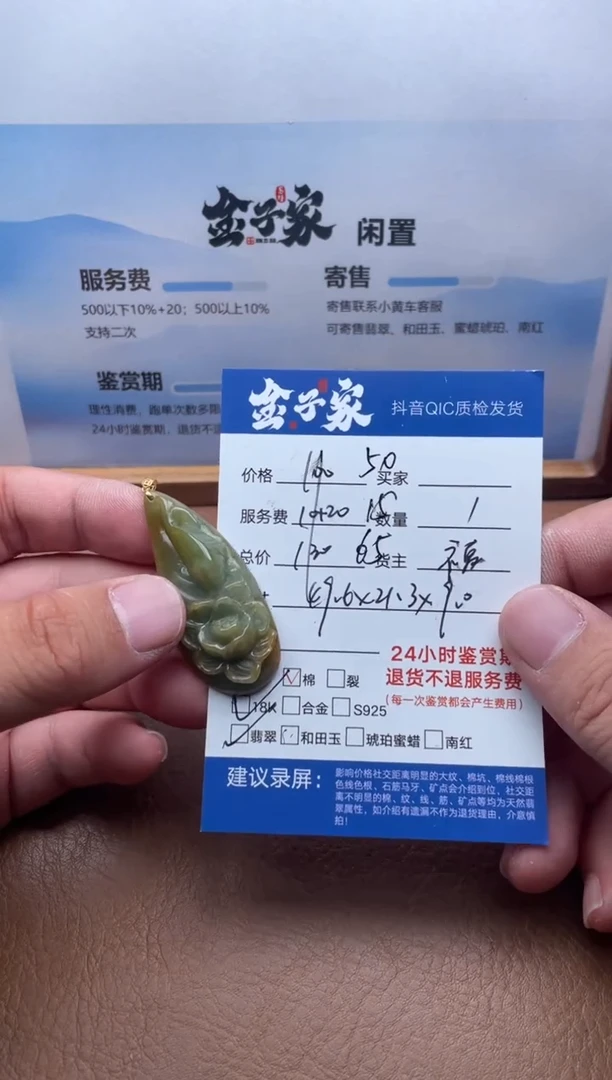 金子家 闲置
服务费
500以下10%+20；500以上10%
支持二次
寄售
寄售联系小黄车客服
可寄售翡翠、和田玉、蜜蜡琥珀、南红
鉴赏期
理性消费，跑单次数多限
24小时鉴赏期，退货不退
金子家 抖音QIC质检发货
价格 100 50 买家
服务费 10+20 15 数量 1
总价 130 65 货主
49.6×21.3×9.0
24小时鉴赏期
退货不退服务费
(每一次鉴赏都会产生费用)
棉 裂
18K 合金 S925
翡翠 和田玉 琥珀蜜蜡 南红
建议录屏：
影响价格社交距离明显的大纹、棉坑、棉线棉根
色线色根、石筋马牙、矿点会介绍到位，社交距
离不明显的棉、纹、线、筋、矿点等均为天然翡
翠属性，如介绍有遗漏不作为退货理由，介意慎
拍！